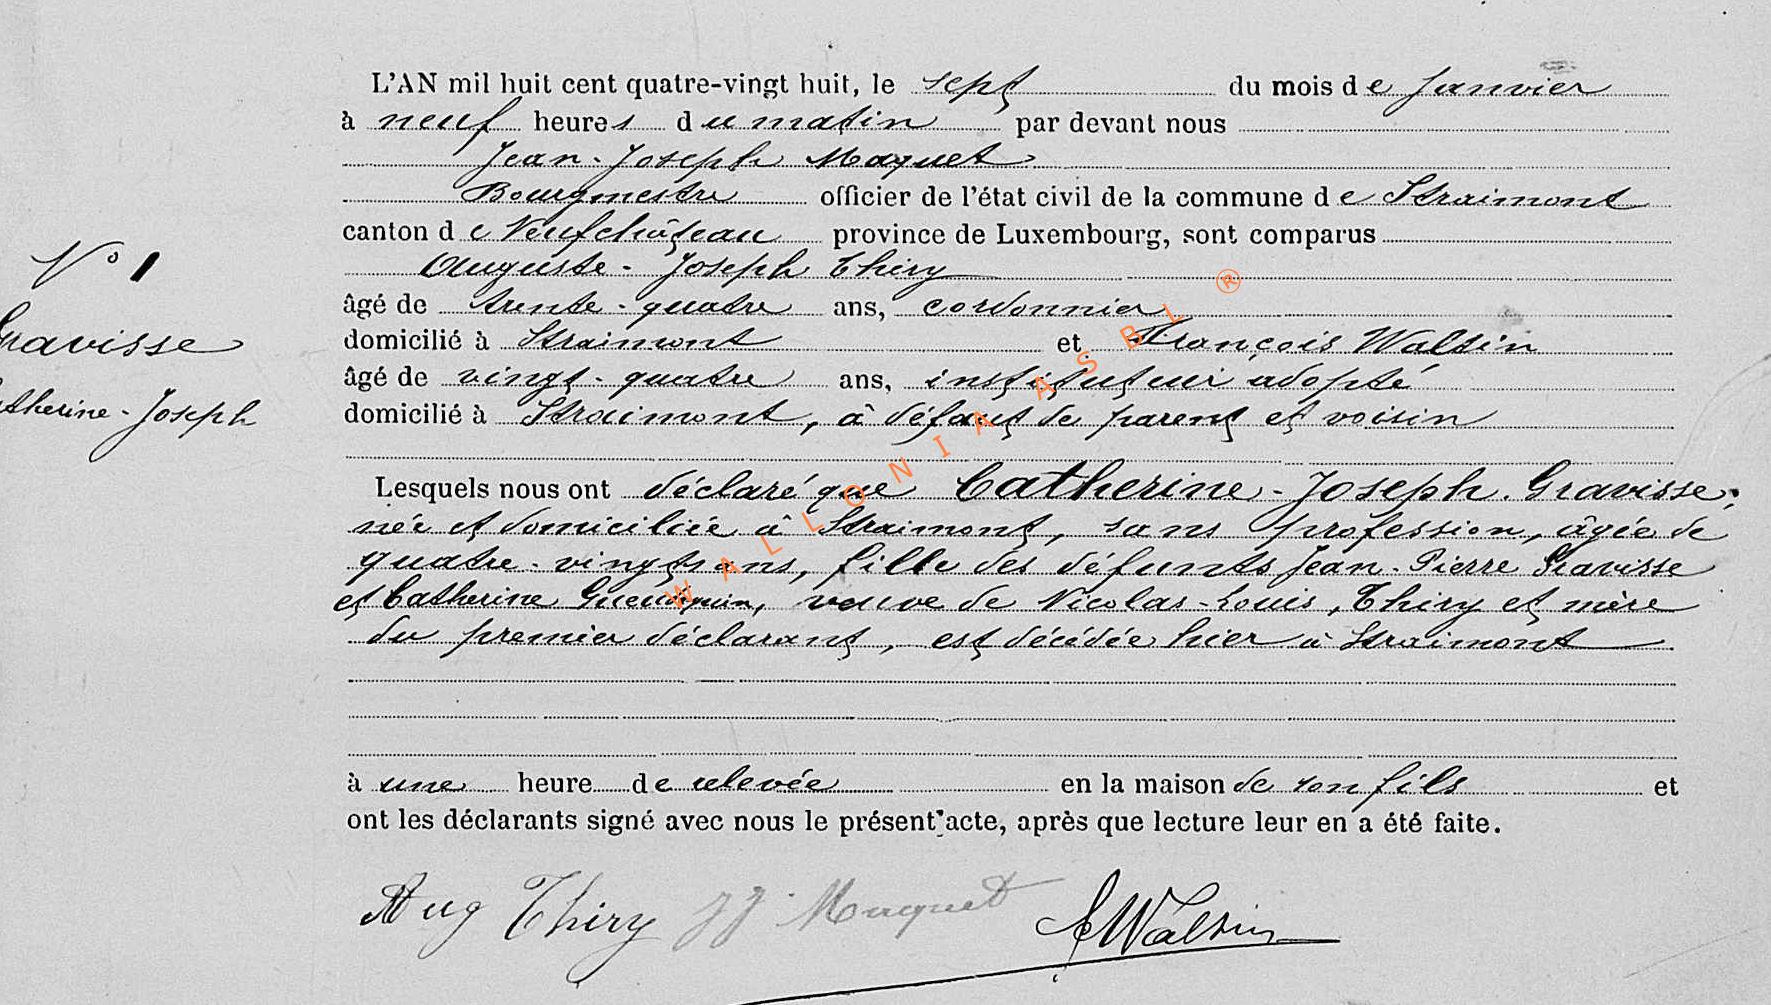 L'AN mil huit cent quatre-vingt huit, le sept du mois de Janvier
à neuf heures du matin par devant nous
Jean-Joseph Maquet
Bourgmestre officier de l'état civil de la commune de Straimont
canton de Neufchâteau province de Luxembourg, sont comparus
N° 1
Auguste-Joseph Thiry
âgé de trente-quatre ans, cordonnier
Gravisse
domicilié à Straimont et François Waltzin
âgé de vingt-quatre ans, instituteur adopté
Catherine-Joseph
domicilié à Straimont, à défaut de parent et voisin
Lesquels nous ont déclaré que Catherine-Joseph Gravisse,
née et domiciliée à Straimont, sans profession, âgée de
quatre-vingts ans, fille des défunts Jean-Pierre Gravisse
et Catherine veuve de Nicolas-Louis, Thiry et mère
du premier déclarant, est décédée hier à Straimont
à une heure de relevée en la maison de son fils et
ont les déclarants signé avec nous le présent acte, après que lecture leur en a été faite.
Aug Thiry JJ. Maquet
WALLONIA ASBL ®